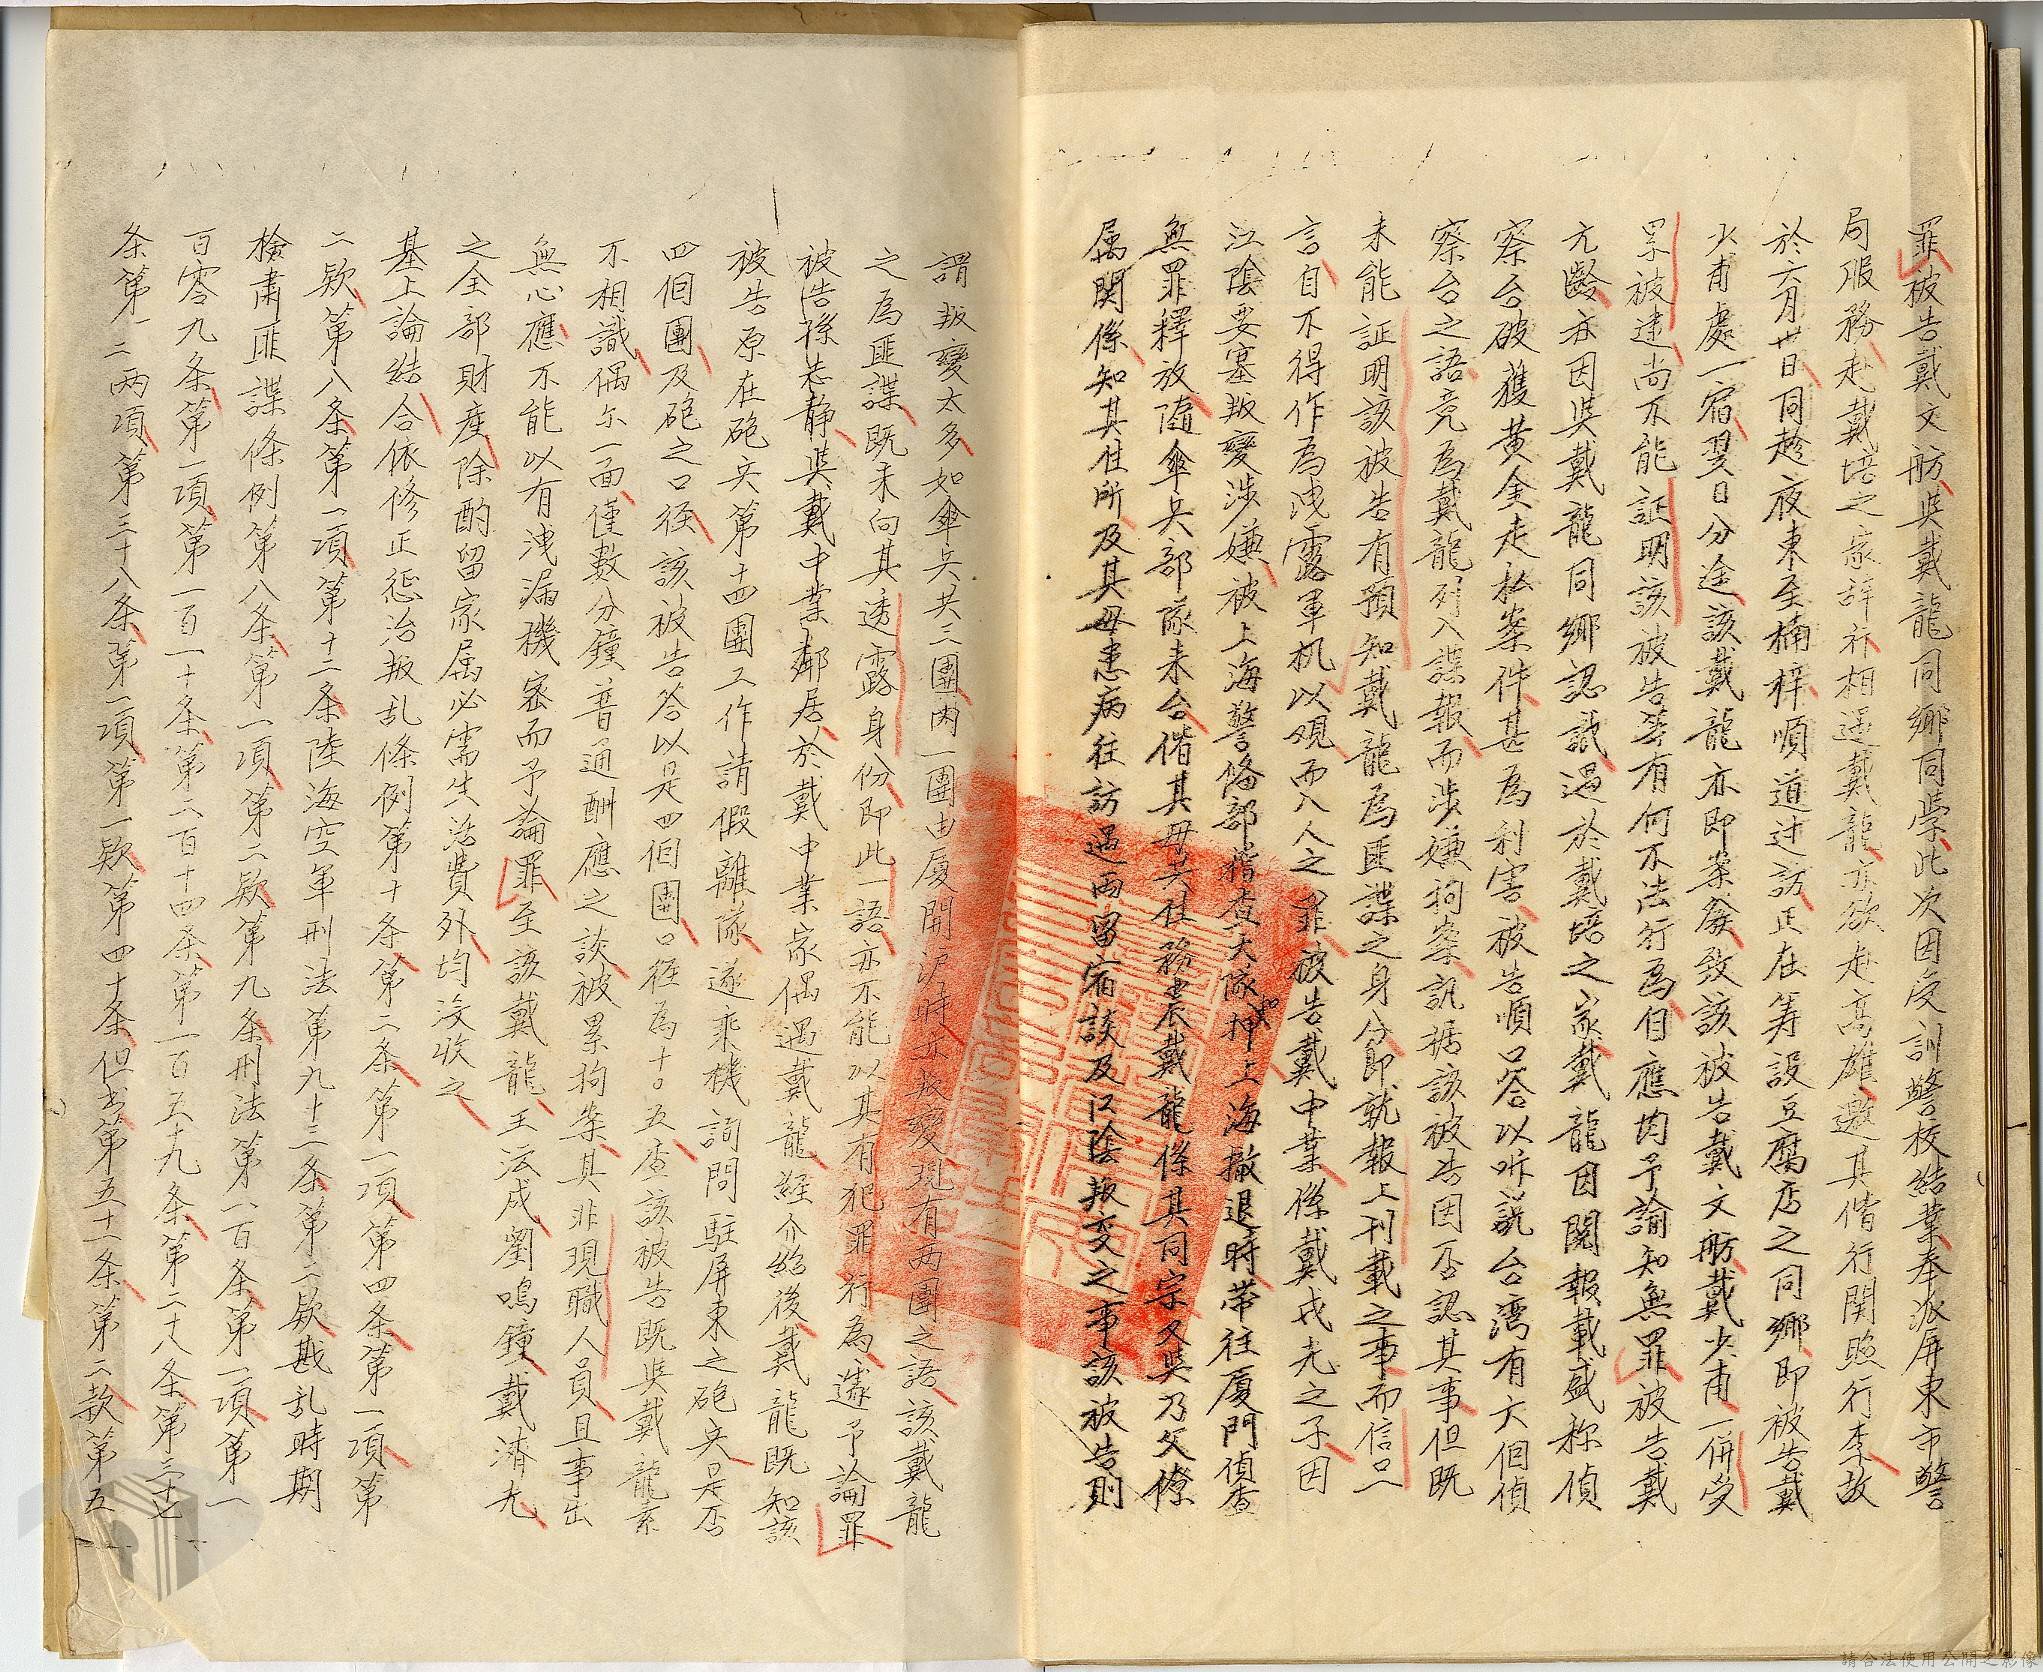 罪被告戴文舫與戴龍同鄉同學此次因受訓警校結業奉派屏東市警
局服務赴戴培之家辞行相遇戴龍亦欲赴高雄邀其偕行関照行李故
於六月廿日同趁夜車至楠梓順道过訪正在筹設豆腐店之同鄉即被告戴
少甫處一宿翌日分途該戴龍亦即案發致該被告戴文舫戴少甫一併受
累被逮尚不能証明該被告等有何不法行為自應均予諭知無罪被告戴
亢齡亦因與戴龍同鄉認識過於戴培之家戴龍因閱報載盛称偵
察台破獲黃金走私案件甚為利害被告順口答以听説台湾有六個偵
察台之語竟為戴龍列入諜報而涉嫌拘案訊据該被告因否認其事但既
未能証明該被告有預知戴龍為匪諜之身分即就報上刊載之事而信口一
言自不得作為洩露軍机以观而入人之罪被告戴中業係戴戎光之子因
江陰要塞叛變涉嫌被上海警俻部稽查大隊押上海撤退時带往厦門偵查
無罪釋放隨傘兵部隊来台偕其母共住務農戴龍係其同宗又與乃父僚
属関係知其住所及其母患病往訪遇雨留宿談及江陰叛变之事該被告則
謂叛變太多如傘兵共三團內一團由廈開沪時亦叛變現有两團之語該戴龍
之為匪諜既未向其透露身份即此一語亦不能以其有犯罪行為遽予論罪
被告孫志靜與戴中業鄰居於戴中業家偶遇戴龍經介紹後戴龍既知該
被告原在砲兵第十四團工作請假離隊遂乘機詢問駐屏東之砲兵是否
四個團及砲之口徑該被告答以是四個團口徑為十○五查該被告既與戴龍素
不相識偶尔一面僅數分鐘普通酬應之談被累拘案其非現職人員且事出
無心應不能以有洩漏機密而予論罪至該戴龍王沄成劉鳴鐘戴濟光
之全部財產除酌留家属必需生活費外均沒收之
基上論結合依修正惩治叛乱條例第十条第二条第一項第四条第一項第
二欵第八条第一項第十二条陸海空軍刑法第九十三条第二欵戡乱時期
檢肅匪諜條例第八条第一項第二欵第九条刑法第一百条第一項第一
百零九条第一項第一百一十条第二百十四条第一百五九条第二十八条第三十七
条第一二两項第三十八条第一項第一欵第四十条但书第五十一条第二款第五